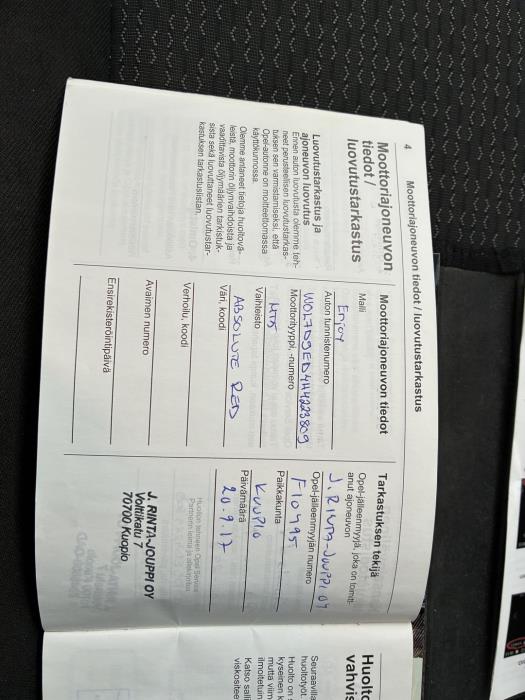 4 Moottoriajoneuvon tiedot / luovutustarkastus
Moottoriajoneuvon
tiedot /
luovutustarkastus
Luovutustarkastus ja
ajoneuvon luovutus
Ennen auton luovutusta olemme teh-
neet perusteellisen luovutustarkas-
tuksen sen varmistamiseksi, että
Opel-autonne on moitteettomassa
käyttökunnossa.
Olemme antaneet tietoja huoltovä-
leistä, moottorin öljynvaihdoista ja
vaadittavista öljymäärien tarkistuk-
sista sekä luovuttaneet luovutustar-
kastuksen tarkastuslistan.
Moottoriajoneuvon tiedot
Malli
Enjoy
Auton tunnistenumero
W0L7D9ED4H4223809
Moottorityyppi, -numero
MT5
Vaihteisto
ABSOLUTE RED
Väri, koodi
Verhoilu, koodi
Avaimen numero
Ensirekisteröintipäivä
Tarkastuksen tekijä
Opel-jälleenmyyjä, joka on toimit-
tanut ajoneuvon
J. RINTA-JOUPPI OY
Opel-jälleenmyyjän numero
F10495
Paikkakunta
KUOPIO
Päivämäärä
20.9.17
J. RINTA-JOUPPI OY
Volttikatu 7
70700 Kuopio
Huolto
vahvis
Seuraavilla
huoltotyöt
Huolto on
kyseinen k
mutta viim
ilmoitetuin
Katso salli
viskositee